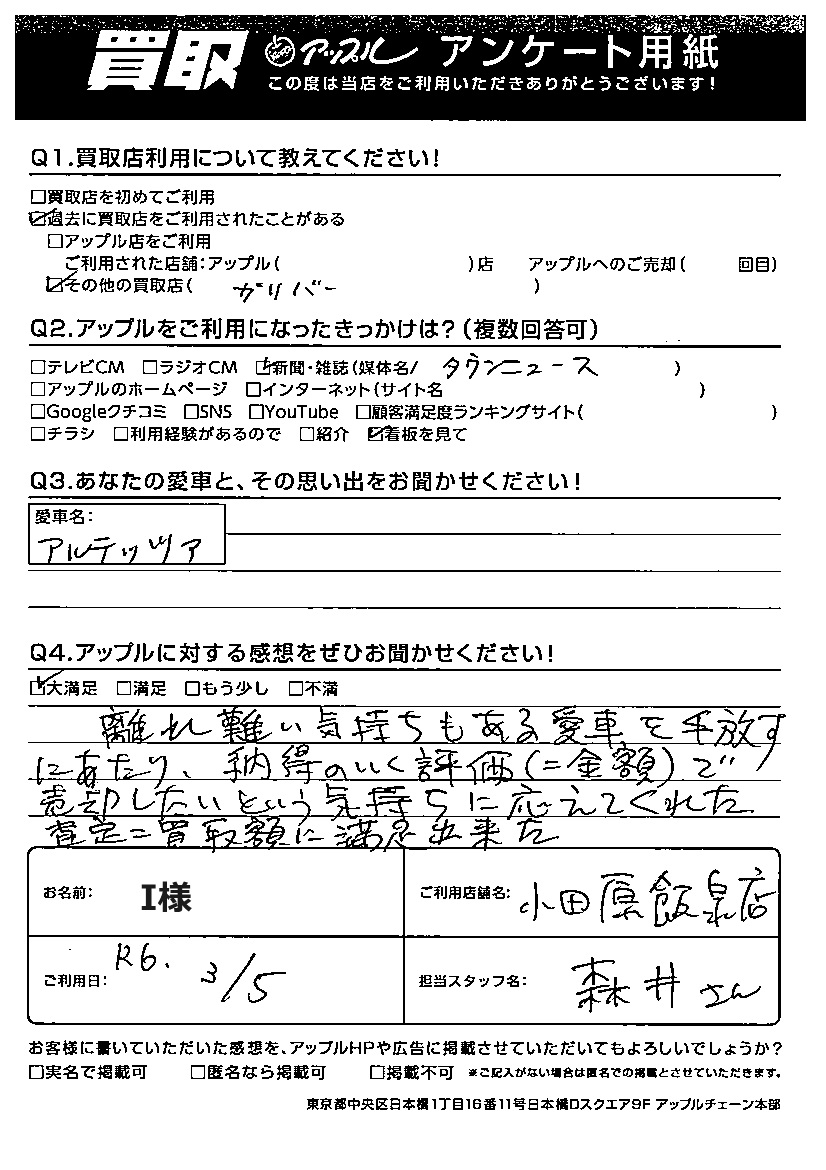 買取 アップル アンケート用紙
この度は当店をご利用いただきありがとうございます!
Q1.買取店利用について教えてください!
□買取店を初めてご利用
☑過去に買取店をご利用されたことがある
□アップル店をご利用
ご利用された店舗:アップル( )店 アップルへのご売却( 回目)
☑その他の買取店( ガリバー )
Q2.アップルをご利用になったきっかけは?(複数回答可)
□テレビCM □ラジオCM ☑新聞・雑誌(媒体名/ タウンニュース )
□アップルのホームページ □インターネット(サイト名 )
□Googleクチコミ □SNS □YouTube □顧客満足度ランキングサイト( )
□チラシ □利用経験があるので □紹介 ☑看板を見て
Q3.あなたの愛車と、その思い出をお聞かせください!
愛車名:
アルテッツァ
Q4.アップルに対する感想をぜひお聞かせください!
☑大満足 □満足 □もう少し □不満
離れ難い気持ちもある愛車を手放す
にあたり、納得のいく評価(=金額)で
売却したいという気持ちに応えてくれた
査定=買取額に満足出来た
お名前: I様
ご利用店舗名: 小田原飯泉店
ご利用日: R6. 3/5
担当スタッフ名: 森井さん
お客様に書いていただいた感想を、アップルHPや広告に掲載させていただいてもよろしいでしょうか?
□実名で掲載可 □匿名なら掲載可 □掲載不可 ※ご記入がない場合は匿名での掲載とさせていただきます。
東京都中央区日本橋1丁目16番11号日本橋Dスクエア9F アップルチェーン本部